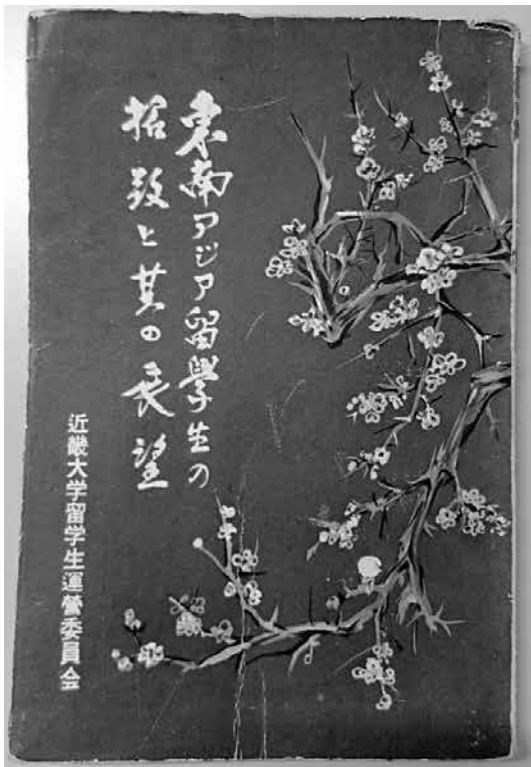 東南アジア留學生の
招致と其の展望
近畿大学留学生運営委員会